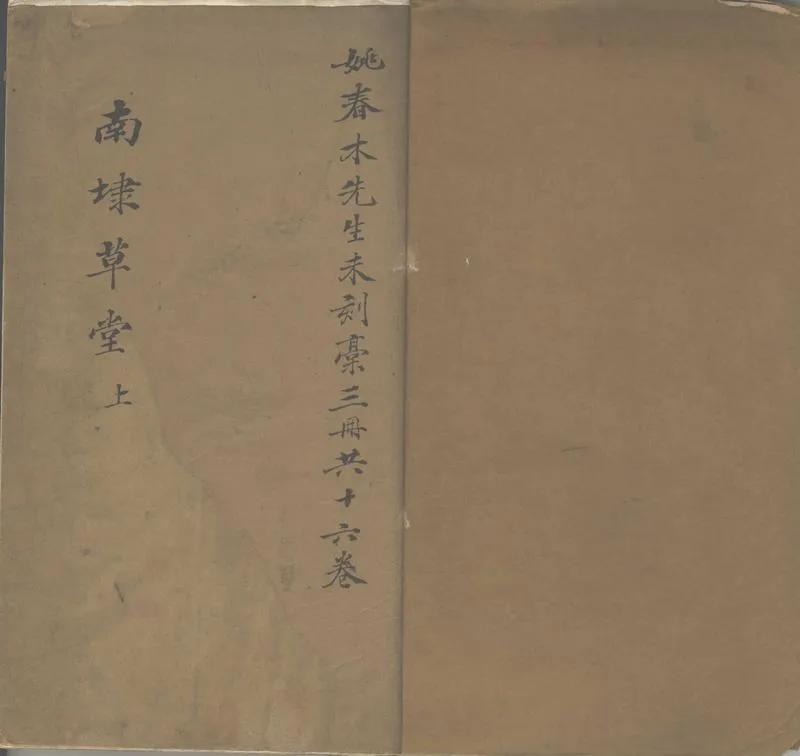 姚春木先生未刻稾三冊共十六卷
南埭草堂 上